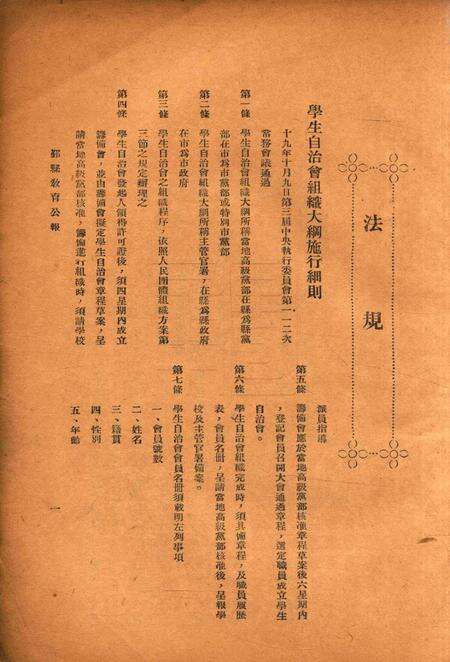 法規
學生自治會組織大綱施行細則
十九年十月九日第三屆中央執行委員會第一一二次
常務會議通過
第一條 學生自治會組織大綱所稱當地高級黨部在縣爲縣黨
部在市爲市黨部或特別市黨部
第二條 學生自治會組織大綱所稱主管官署，在縣爲縣政府
在市爲市政府
第三條 學生自治會之組織程序，依照人民團體組織方案第
三節之規定辦理之
第四條 學生自治會發起人領得許可證後，須四星期內成立
籌備會，並由籌備會擬定學生自治會章程草案，呈
請當地高級黨部核准，籌備進行組織時，須請學校
派員指導
第五條 籌備會應於當地高級黨部核准章程草案後六星期內
，登記會員召開大會通過章程，選定職員成立學生
自治會。
第六條 學生自治會組織完成時，須具備章程，及職員履歷
表，會員名冊，呈請當地高級黨部核准後，呈報學
校及主管官署備案。
第七條 學生自治會會員名冊須載明左列事項
一、會員號數
二、姓名
三、籍貫
四、性別
五、年齡
鄞縣教育公報
一